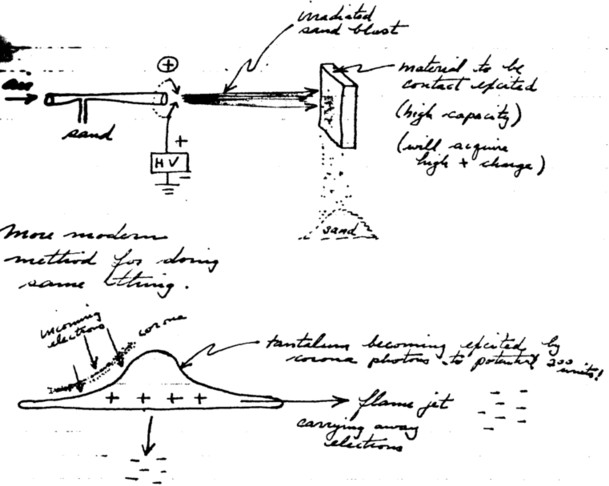 irradiated
sand blast
air
+
sand
+
HV
-
material to be
contact excited
(high capacity)
(will acquire
high + charge)
sand
More modern
method for doing
same thing.
incoming
electrons
corona
tantalum becoming excited by
corona photons to potential 200
units!
+ + + +
flame jet
carrying away
electrons